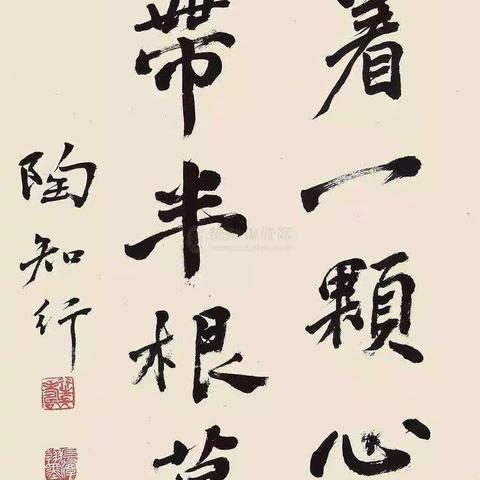 着一顆心
帶半根草
陶知行